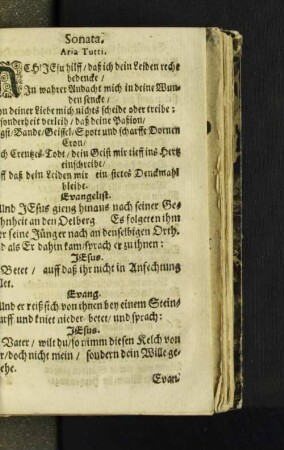 Sonata.
Aria Tutti.
ACH' JEsu hilff / daß ich dein Leiden recht
bedencke /
In wahrer Andacht mich in deine Wun-
den sencke /
on deiner Liebe mich nichts scheide oder treibe ;
sonderheit verleih / daß deine Paßion /
gst / Bande / Geissel / Spott und scharffe Dornen
Cron /
ch Creutzes-Todt / dein Geist mir tieff ins Hertz
einschreibe /
ff daß dein Leiden mir ein stetes Denckmahl
bleibe.
Evangelist.
Und JEsus gieng hinaus nach seiner Ge-
hnheit an den Oelberg Es folgeten ihm
er seine Jünger nach an denselbigen Orth.
d als Er dahin kam / sprach er zu ihnen :
JEsus.
Betet / auff daß ihr nicht in Anfechtung
llet.
Evang.
Und er reiß sich von ihnen bey einem Stein-
urff und kniet nieder betet / und sprach :
JEsus.
Vater / wilt du / so nimm diesen Kelch von
r / doch nicht mein / sondern dein Wille ge-
ehe.
Evan-